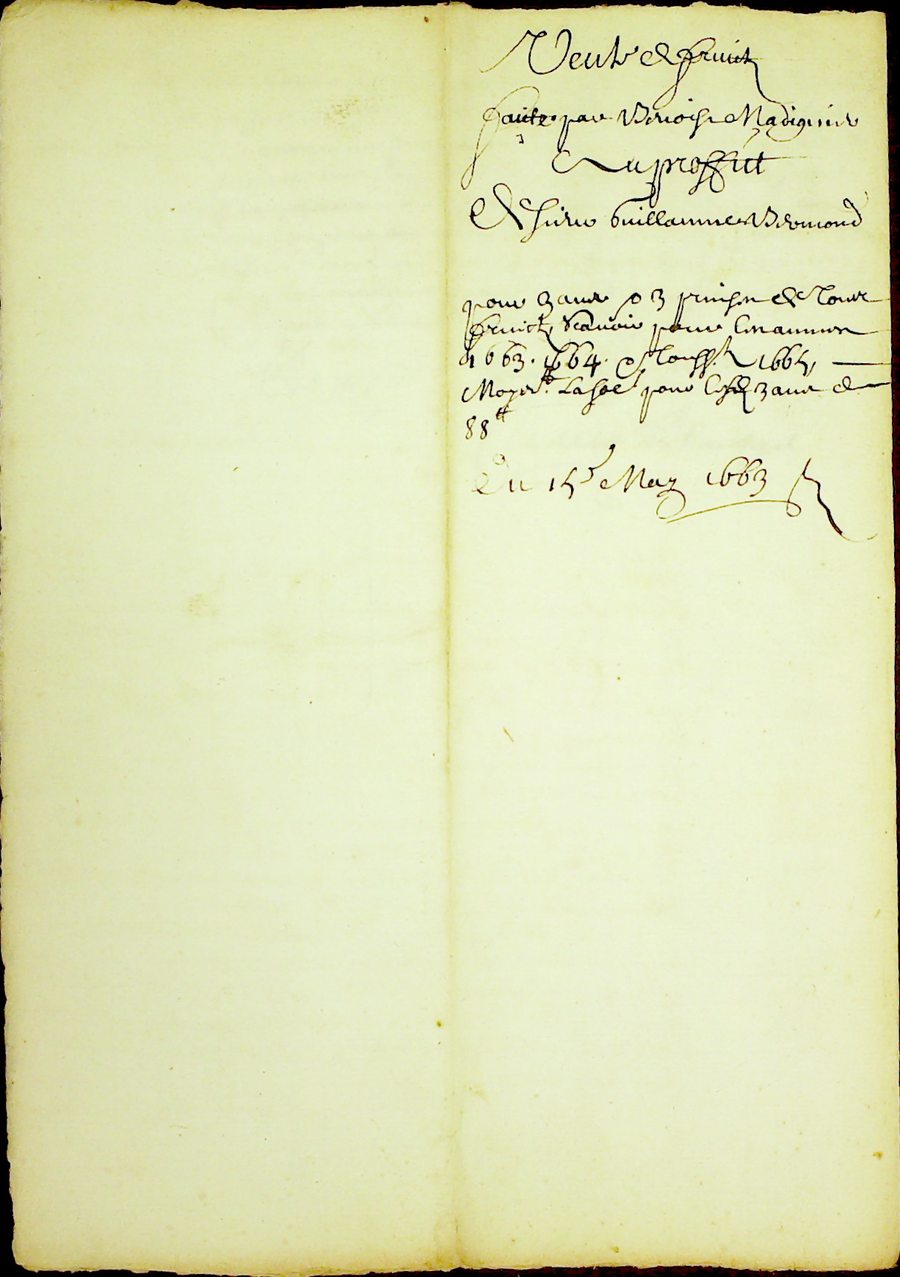 Vente de fruict
faite par Benoist Madignier
Au proffict
De sieur Guillaume Bermond
pour 3 ans et 3 prinses de tous
fruictz scauoir pour les annees
1663. 1664. et 1665,
Moyen.t la so.e pour lesd 3 ans de
88  tt
Du 15e May 1663